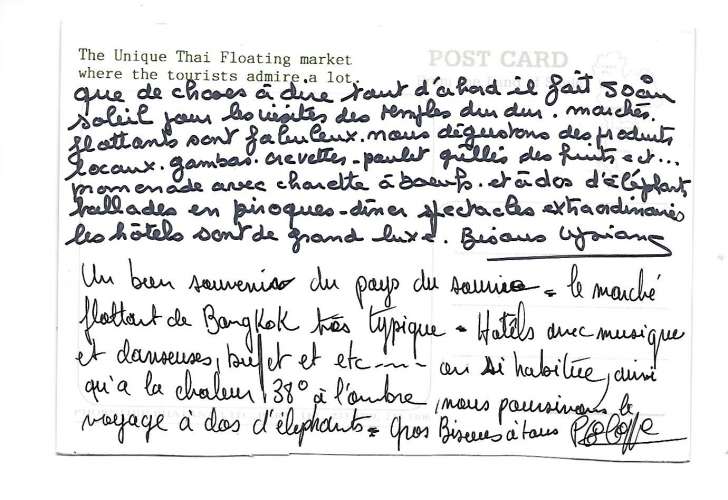 The Unique Thai Floating market
where the tourists admire a lot.
POST CARD
que de choses à dire tout d'abord il fait
soleil pour les visites des temples dur dur. marchés
flottants sont fabuleux. nous dégustons des produits
locaux. gambas. crevettes - poulet grillés des fruits ect...
promenade avec charette à boeufs. et à dos d'éléphants
ballades en pirogues - dîner spectacles extraordinaires
les hôtels sont de grand luxe. Bisous
Un bon souvenir du pays du sourire = le marché
flottant de Bangkok très typique = Hotels avec musique
et danseuses, buffet et etc ---- on s'i habitue, ainsi
qu'a la chaleur, 38° à l'ombre, nous poursuivons le
voyage à dos d'éléphants = Gros Biseus à tous